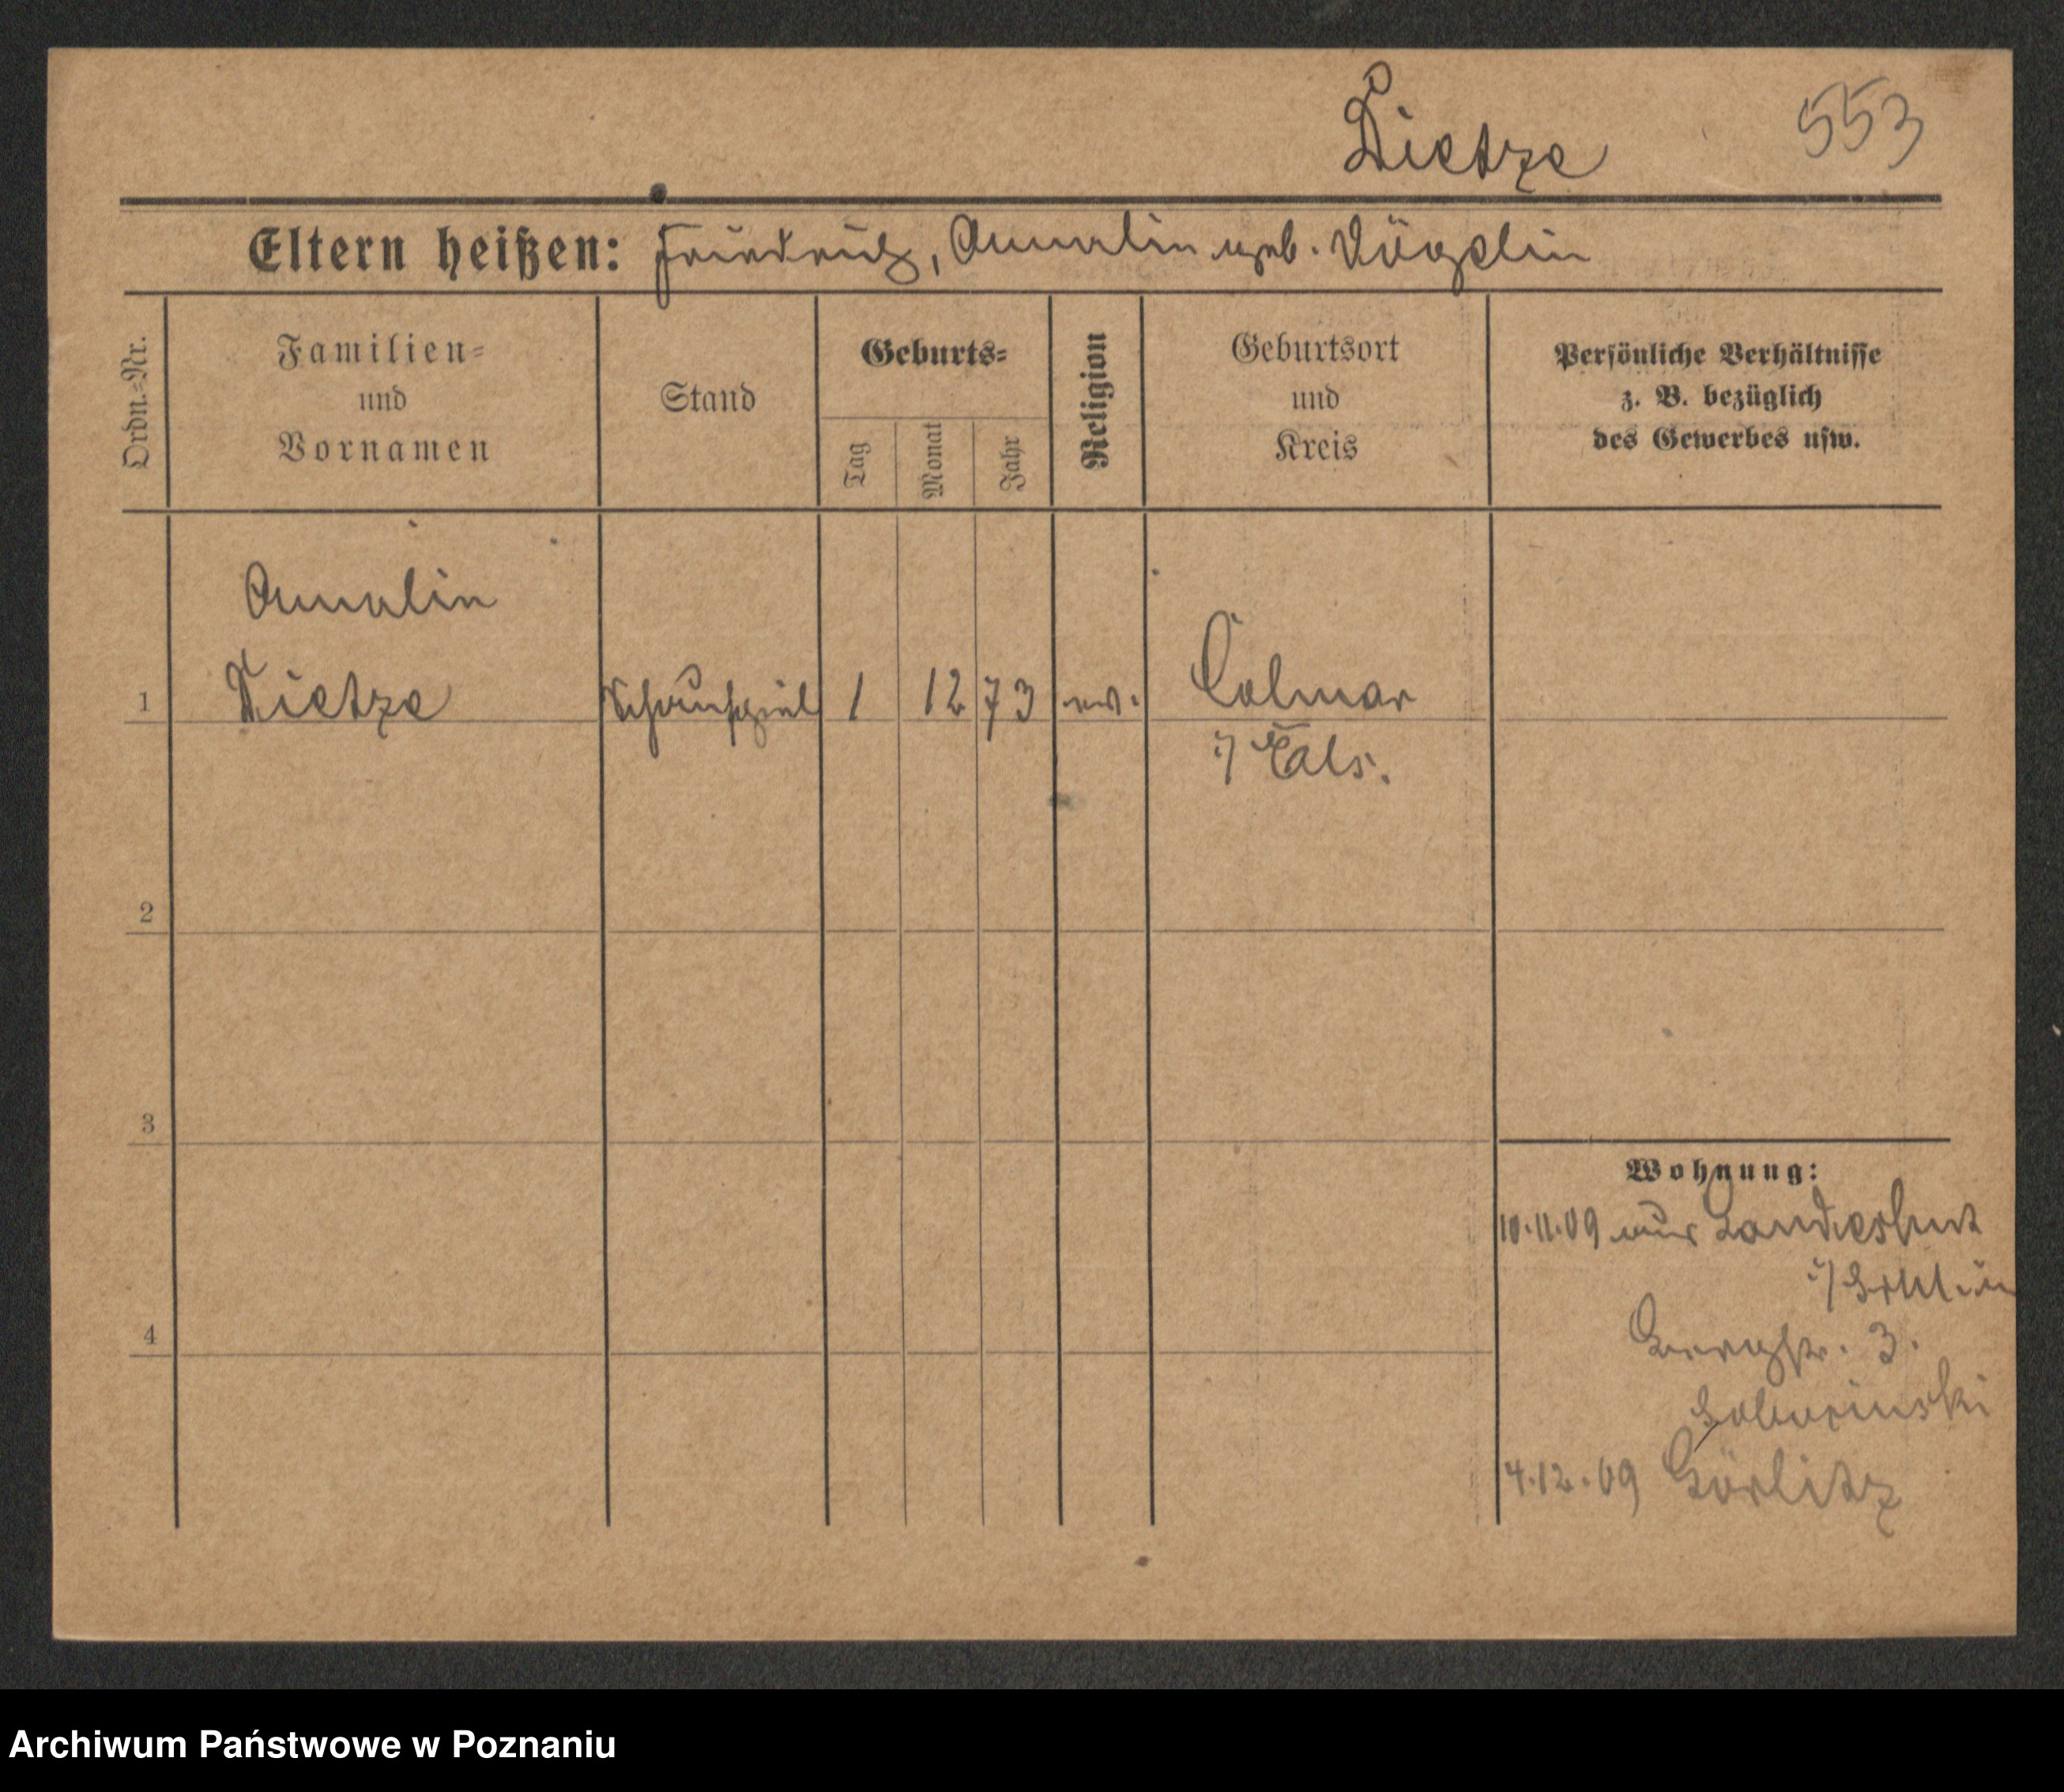 Dietze 553
Eltern heißen: Friedrich, Amalie geb. Vögelin
Ordn.-Nr.
Familien- und Vornamen
Stand
Geburts-
Tag
Monat
Jahr
Religion
Geburtsort und Kreis
Persönliche Verhältnisse z. B. bezüglich des Gewerbes usw.
Amalie
1 Dietze Schauspiel 1 12 73 ev. Colmar
i/ Els.
2
3
4
Wohnung:
10.11.09 aus Landeshut
i/
Bergstr. 3.
4.12.09 Görlitz
Archiwum Państwowe w Poznaniu